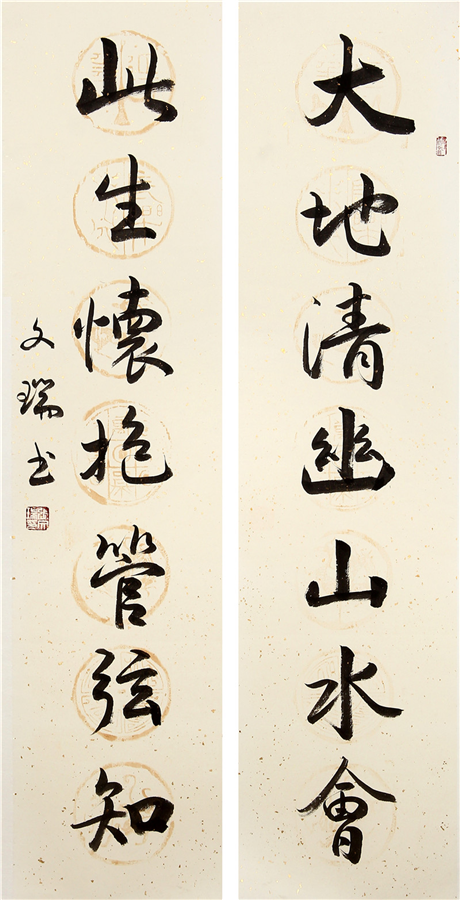 大地清幽山水會
此生懷抱管弦知
文瑞书